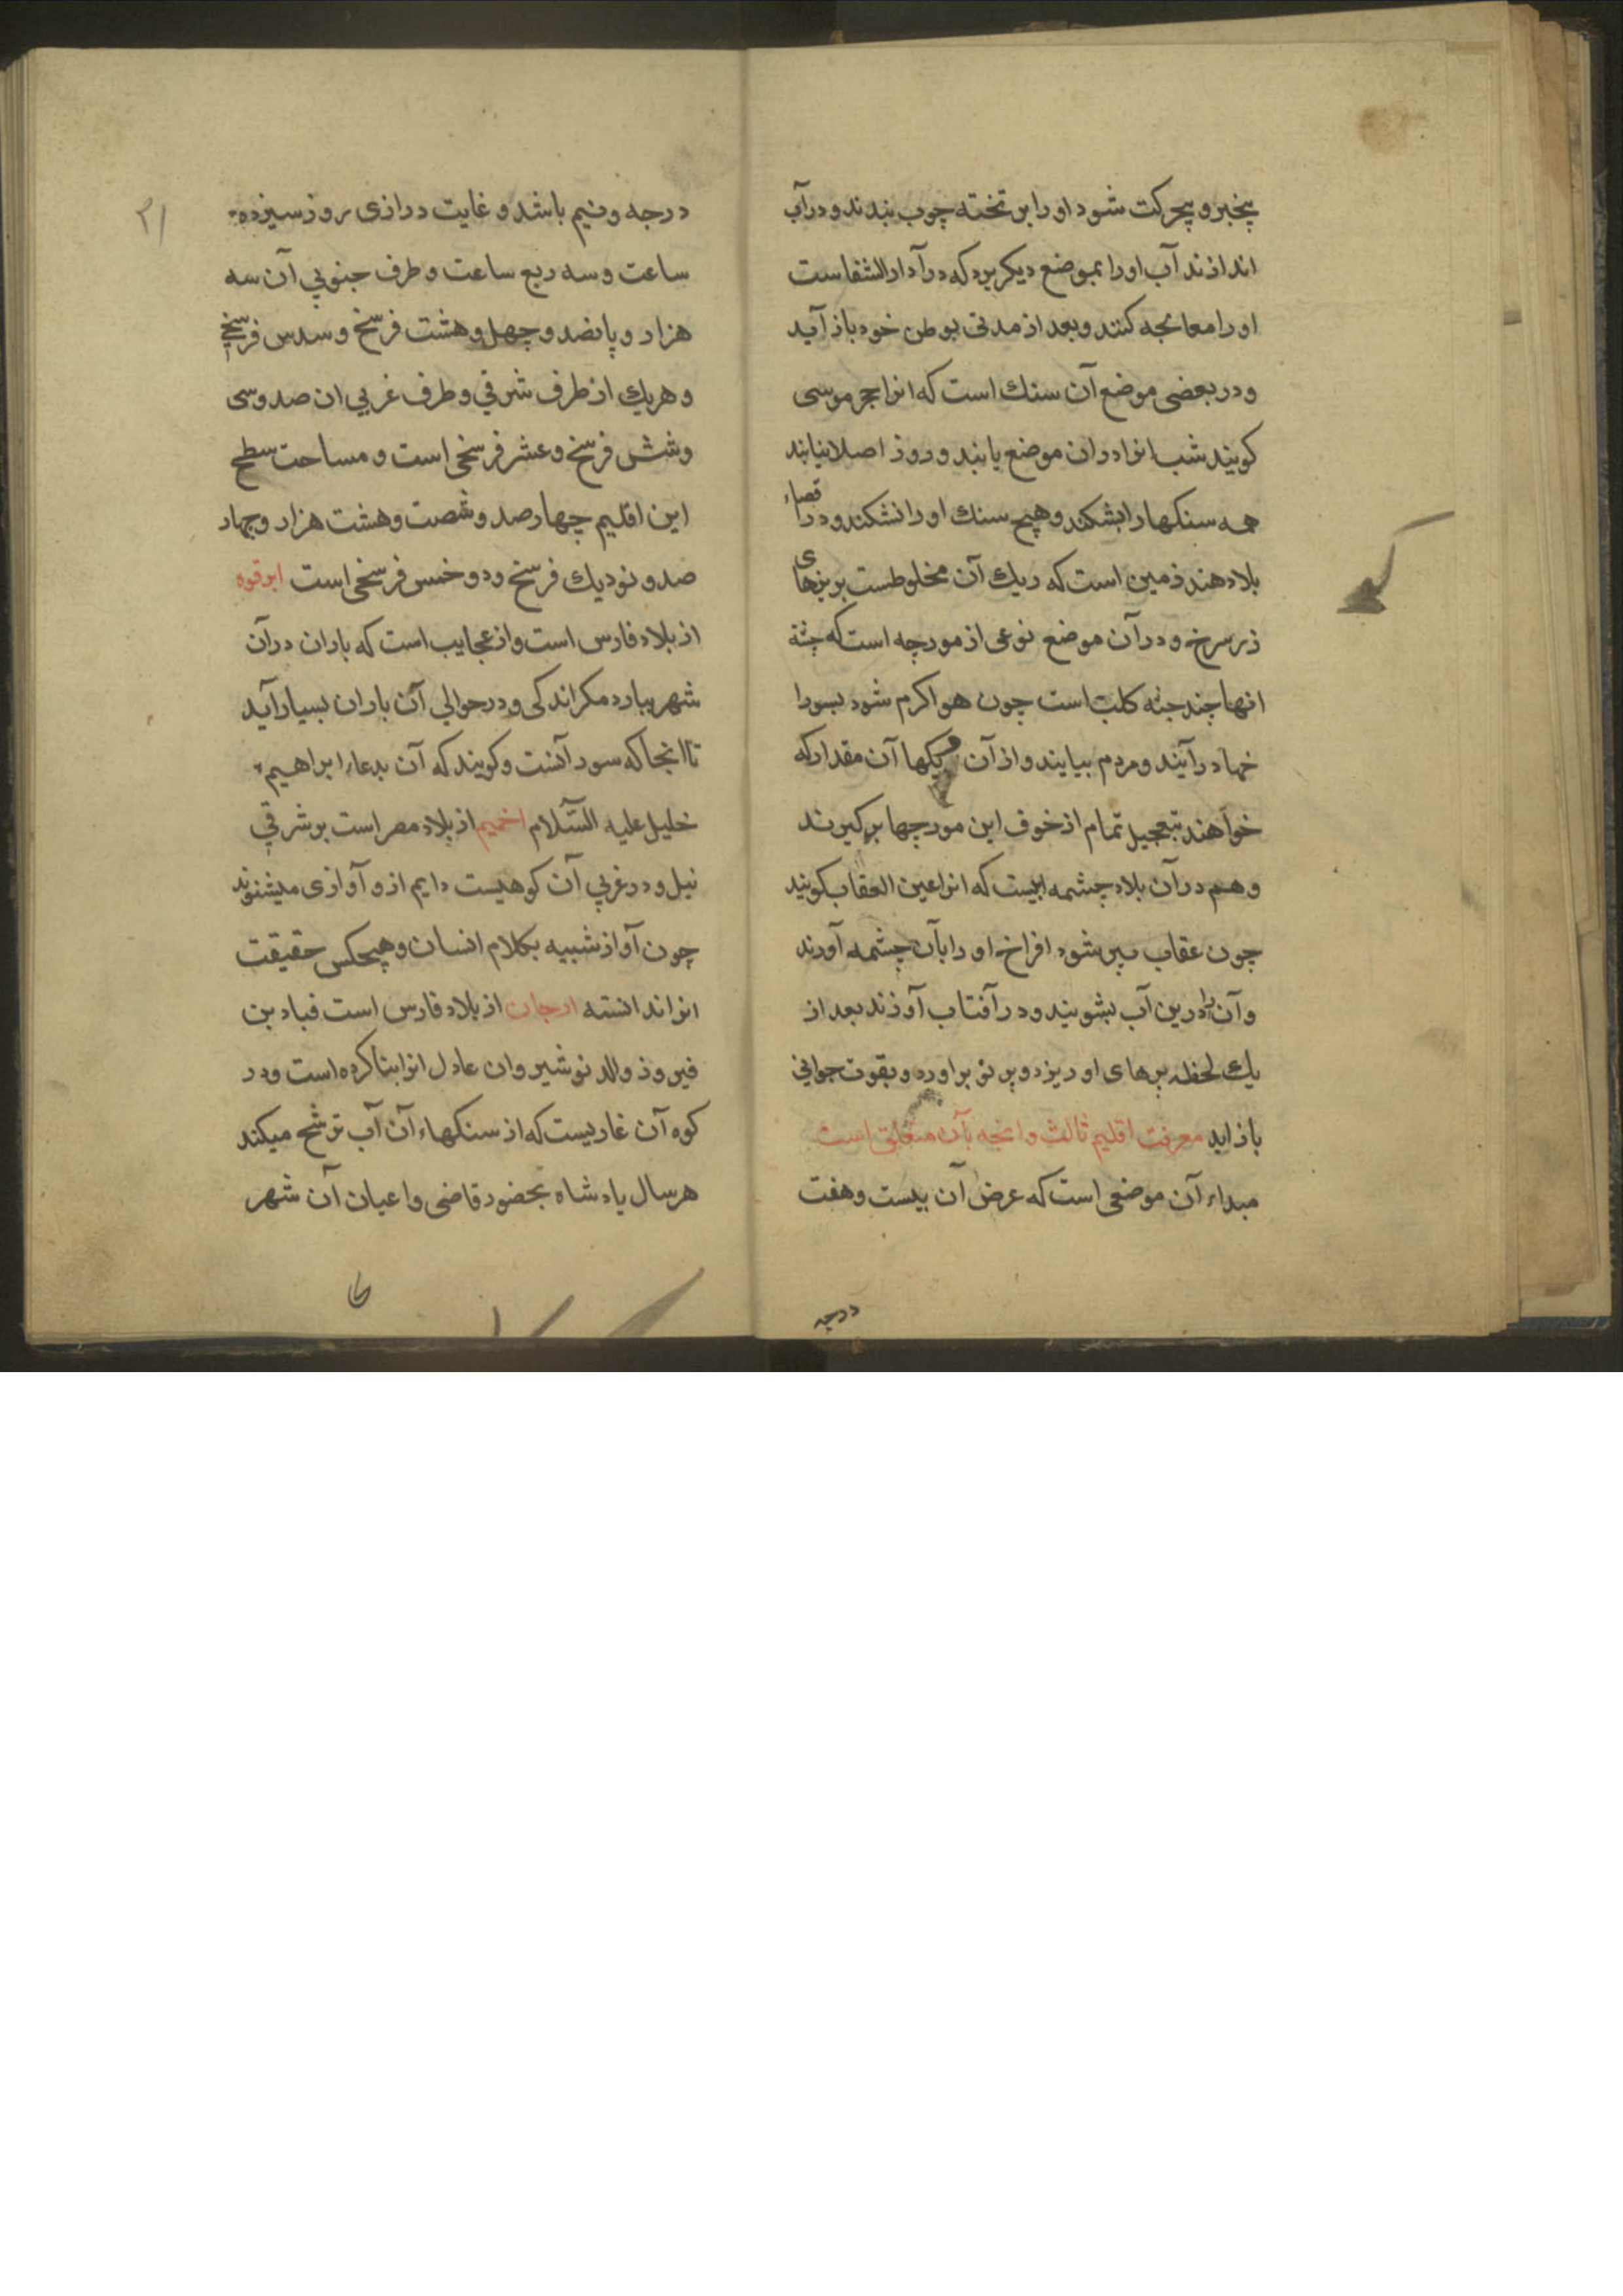 بیخبر و بیحرکت شود او را بر تخته چوب بندند و در آب
اندازند آب او را بموضع دیکر برد که در آ دار الشفاست
او را معالجه کنند و بعد از مدتی بوطن خود باز آید
و در بعضی موضع آن سنك است که انرا حجر موسی
کویند شب انرا در ان موضع یابند و روز اصلا نیابند
همه سنکها را بشکند و هیچ سنك او را نشکند و در اقصاء
بلاد هند زمین است که ریك آن مخلوطست بریزهای
زر سرخ و در آن موضع نوعی از مورچه است که جثة
انها چند جثه کلب است چون هوا کرم شود بسورا
خها در آیند و مردم بیایند و از آن ریکها آن مقدار که
خواهند بتعجیل تمام از خوف این مورچها بر کیرند
و هم در آن بلاد چشمه ایست که انرا عین العقاب کویند
چون عقاب پیر شود افراخ او را بآن چشمه آورند
و آن را درین آب بشویند و در آفتاب آورند بعد از
یك لحظه پرهای او ریزد و پر نو بر اورد و بقوت جوانی
باز اید معرفت اقلیم ثالث و انچه بآن متعلق است
مبداء آن موضعی است که عرض آن بیست و هفت
درجه
۲۱
درجه و نیم باشد و غایت درازی روز سیزده
ساعت و سه ربع ساعت و طرف جنوبی آن سه
هزار و پانصد و چهل و هشت فرسخ و سدس فرسخ
و هریك از طرف شرقی و طرف غربی ان صد و سی
و شش فرسخ و عشر فرسخی است و مساحت سطح
این اقلیم چهار صد و شصت و هشت هزار و چهار
صد و نود یك فرسخ و دو خمس فرسخی است ابرقوه
از بلاد فارس است و از عجایب است که باران در آن
شهر نبارد مکر اندکی و در حوالی آن باران بسیار آید
تا انجا که سور آنست و کویند که آن بدعاء ابراهیم
خلیل علیه السّلام اخمیم از بلاد مصر است بر شرقی
نیل و در غربی آن کوهیست دایم ازو آوازی میشنوند
چون آواز شبیه بکلام انسان و هیچکس حقیقت
انرا ندانسته ارجان از بلاد فارس است قباد بن
فیروز والد نوشیروان عادل انرا بنا کرده است و در
کوه آن غاریست که از سنکهاء آن آب ترشح میکند
هر سال پادشاه بحضور قاضی و اعیان آن شهر